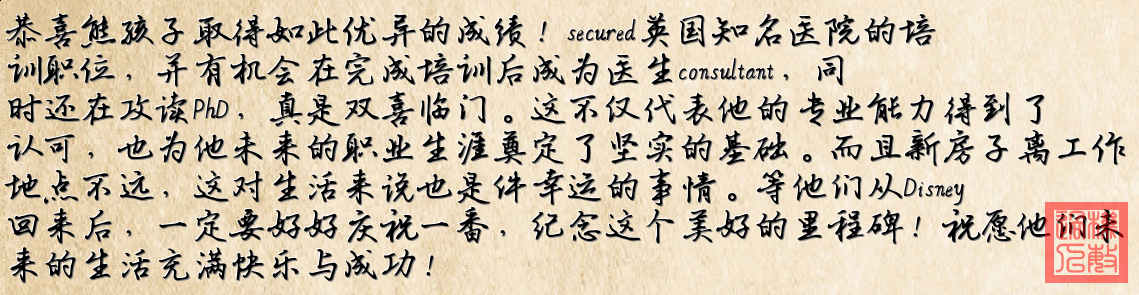 恭喜熊孩子取得如此优异的成绩！secured英国知名医院的培
训职位，并有机会在完成培训后成为医生consultant，同
时还在攻读PhD，真是双喜临门。这不仅代表他的专业能力得到了
认可，也为他未来的职业生涯奠定了坚实的基础。而且新房子离工作
地点不远，这对生活来说也是件幸运的事情。等他们从Disney
回来后，一定要好好庆祝一番，纪念这个美好的里程碑！祝愿他们未
来的生活充满快乐与成功！